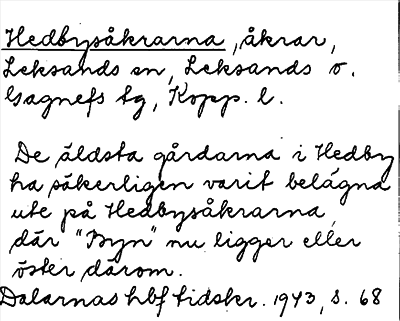 Hedbysåkrarna, åkrar,
Leksands sn, Leksands o.
Gagnefs tg, Kopp. l.
De äldsta gårdarna i Hedby
ha säkerligen varit belägna
ute på Hedbysåkrarna,
där "Byn" nu ligger eller
öster därom.
Dalarnas hbf tidskr. 1943, s. 68